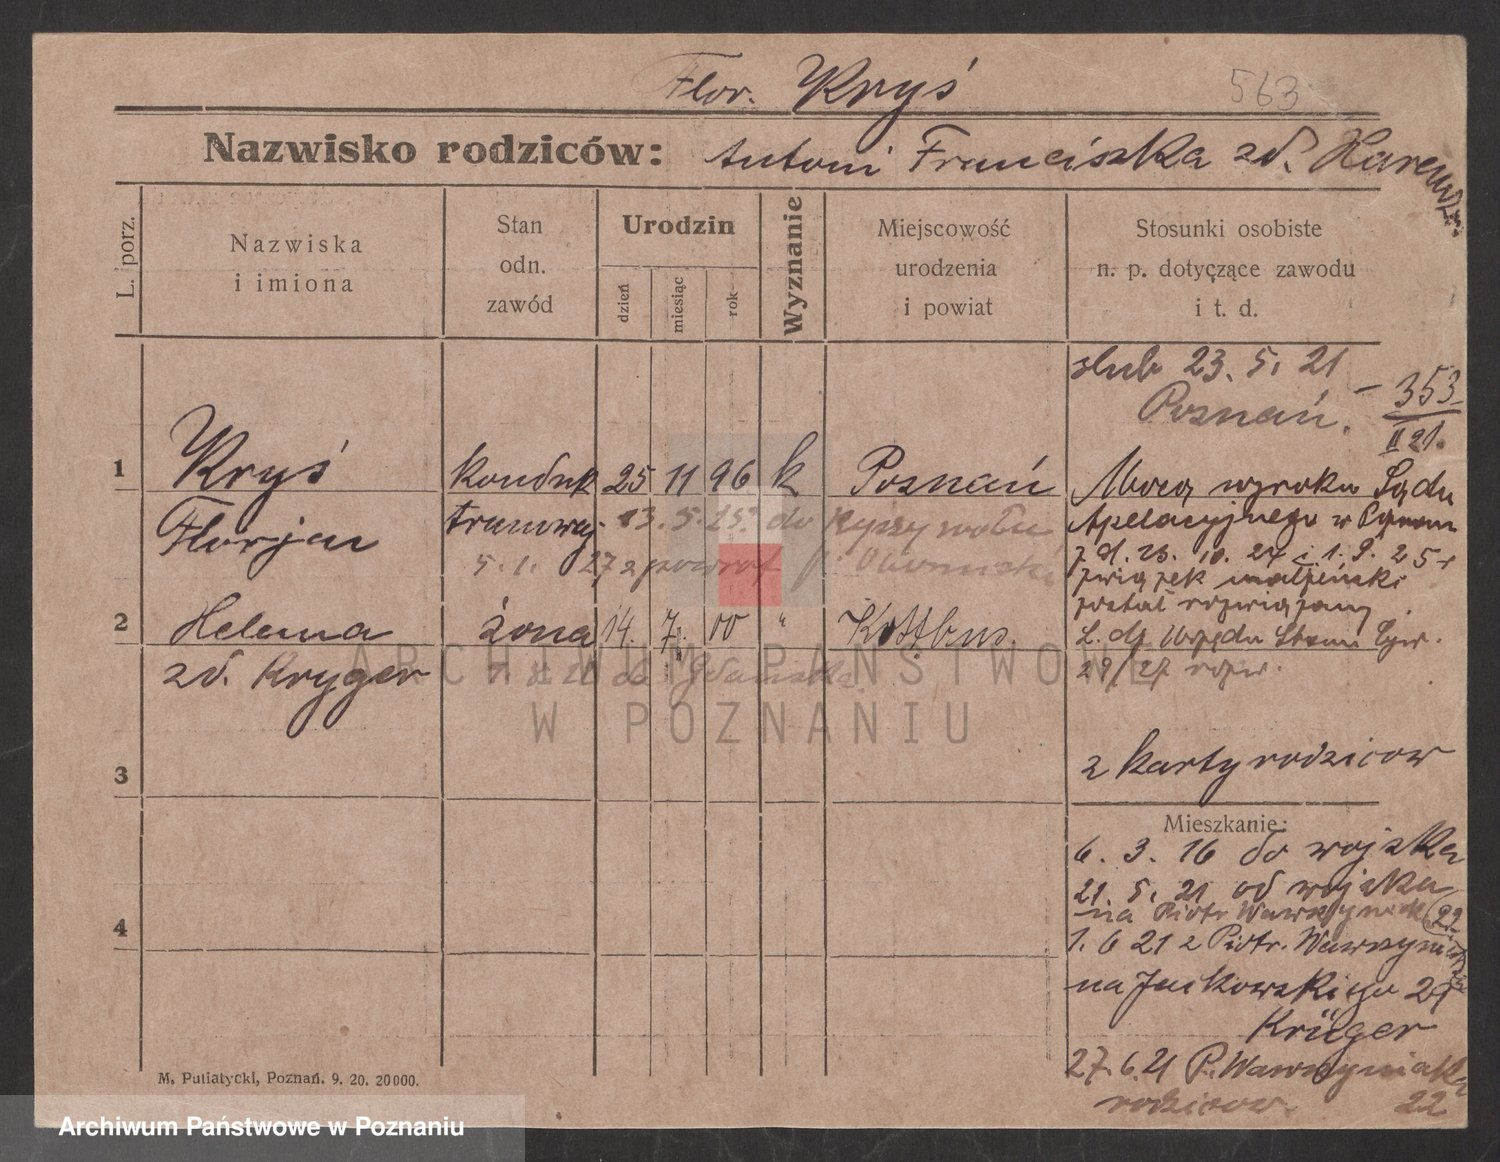 Flor. Kryś 563
Nazwisko rodziców: Antoni Franciszka zd.
L. porz.
Nazwiska
i imiona
Stan
odn.
zawód
Urodzin
dzień
miesiąc
rok
Wyznanie
Miejscowość
urodzenia
i powiat
Stosunki osobiste
n. p. dotyczące zawodu
i t. d.
slub 23. 5. 21
Poznań. - 353
II 21.
1 Kryś konduk 25 11 96 k Poznań
Florjan tramwaj. 13. 5. 25. do Ryczywołu
5. 1. 27 z powrot p. Obornicki
2 Helena żona 14. 7. 00 " Kottbus.
zd. Kryger do Gdańska
Mocą wyroku Sądu
Apelacyjnego w Poznan
z d. 23. 10. 24 i 1. 9. 25 r
związek małżeński
został rozwiązany
L. dz. Urzędu Stanu Cyw.
29/27 rozw.
z karty rodzicow
3
Mieszkanie:
6. 3. 16 do wojska
21. 5. 21 od wojska
na Piotr Wawrzyniak 22
1. 6 21 z Piotr. Wawrzyniaka
na Jackowskiego 29
Krüger
27. 6. 21 P. Wawrzyniaka
rodzicow. 22
4
M. Putiatycki, Poznań. 9. 20. 20000.
ARCHIWUM PAŃSTWOWE
W POZNANIU
Archiwum Państwowe w Poznaniu